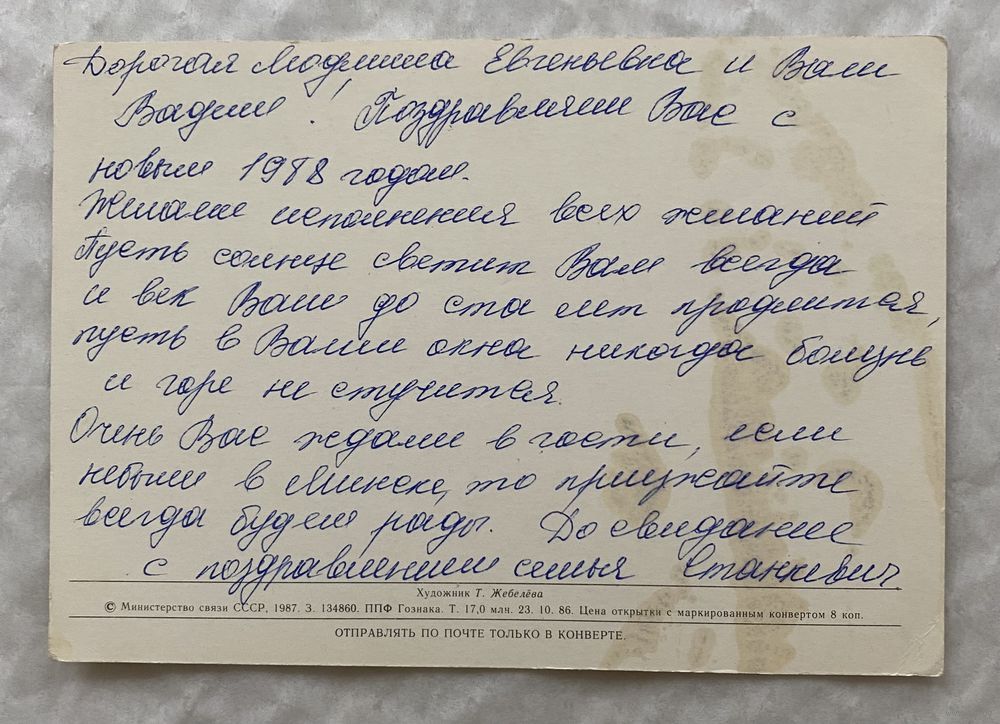 Дорогая Людмила Евгеньевна и Ваш
Вадим! Поздравляем Вас с
новым 1988 годом.
Желаем исполнения всех желаний
Пусть солнце светит Вам всегда
и век Ваш до ста лет продлится,
пусть в Ваши окна никогда болезнь
и горе не стучится.
Очень Вас ждали в гости, если
небыли в Минске, то приезжайте
всегда будем рады. До свидание
с поздравлением семья Станкевич
Художник Т. Жебелёва
© Министерство связи СССР, 1987. З. 134860. ППФ Гознака. Т. 17,0 млн. 23. 10. 86. Цена открытки с маркированным конвертом 8 коп.
ОТПРАВЛЯТЬ ПО ПОЧТЕ ТОЛЬКО В КОНВЕРТЕ.